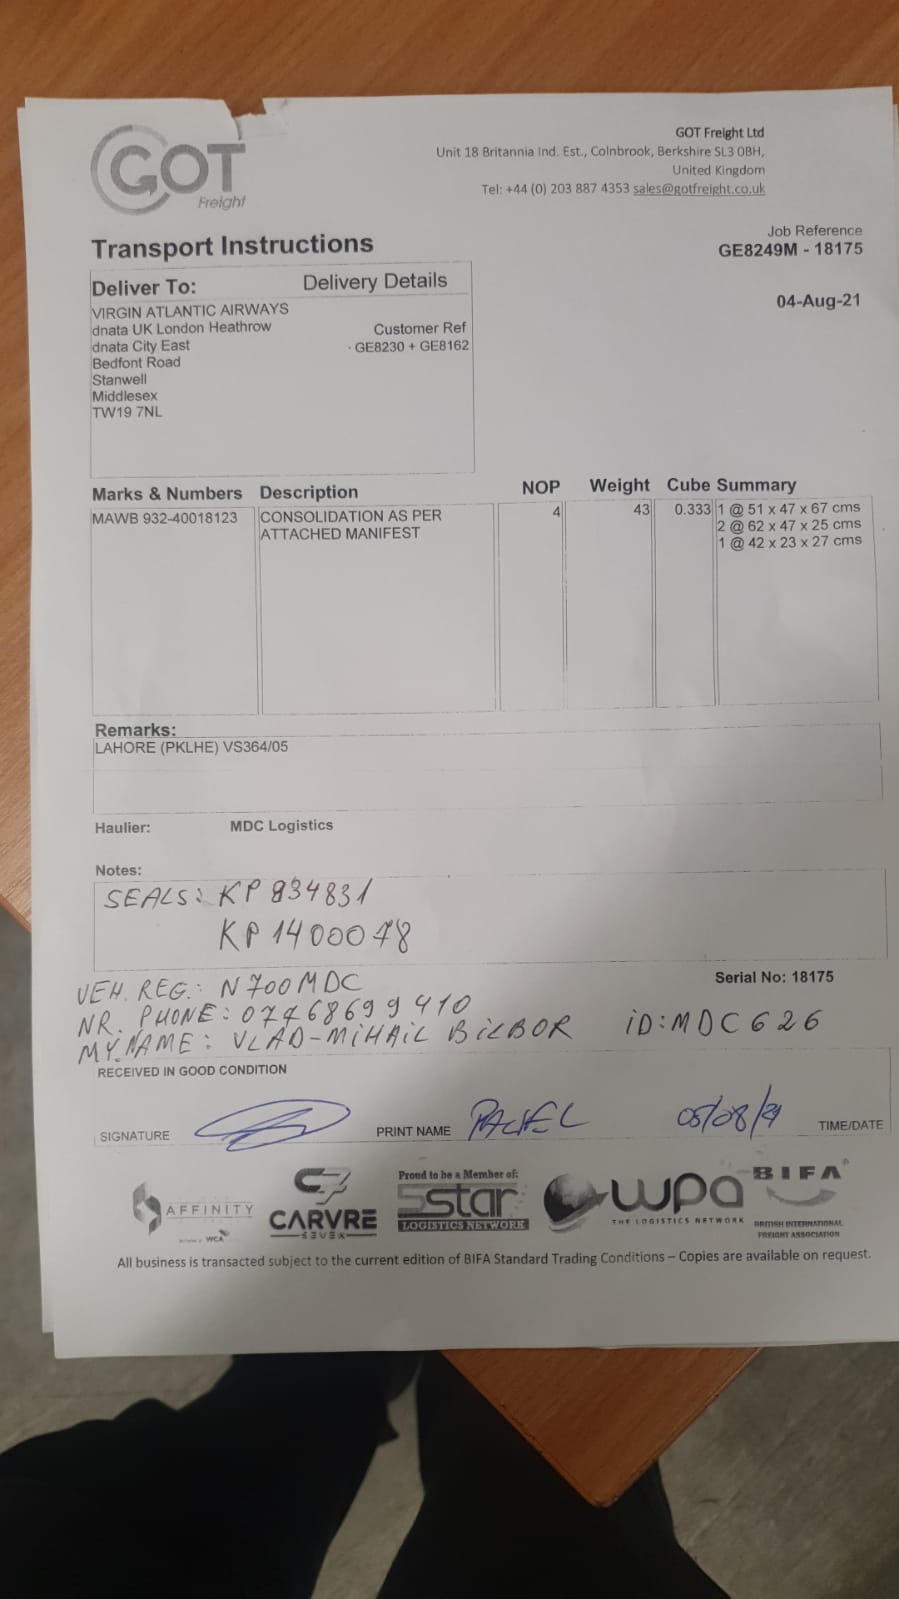 GOT
Freight
GOT Freight Ltd
Unit 18 Britannia Ind. Est., Colnbrook, Berkshire SL3 0BH,
United Kingdom
Tel: +44 (0) 203 887 4353 sales@gotfreight.co.uk
Transport Instructions
Job Reference
GE8249M - 18175
04-Aug-21
Deliver To: Delivery Details
VIRGIN ATLANTIC AIRWAYS
dnata UK London Heathrow Customer Ref
dnata City East · GE8230 + GE8162
Bedfont Road
Stanwell
Middlesex
TW19 7NL
Marks & Numbers Description NOP Weight Cube Summary
MAWB 932-40018123 CONSOLIDATION AS PER 4 43 0.333 1 @ 51 x 47 x 67 cms
ATTACHED MANIFEST 2 @ 62 x 47 x 25 cms
1 @ 42 x 23 x 27 cms
Remarks:
LAHORE (PKLHE) VS364/05
Haulier: MDC Logistics
Notes:
SEALS: KP 834831
KP 1400078
Serial No: 18175
VEH. REG.: N700MDC
NR. PHONE: 07768699410
MY NAME: VLAD-MIHAIL BILBOR ID: MDC626
RECEIVED IN GOOD CONDITION
SIGNATURE PRINT NAME 05/08/21 TIME/DATE
AFFINITY
WCA
CARVRE
SEVEX
Proud to be a Member of:
5star
LOGISTICS NETWORK
wpa
THE LOGISTICS NETWORK
BIFA
BRITISH INTERNATIONAL
FREIGHT ASSOCIATION
All business is transacted subject to the current edition of BIFA Standard Trading Conditions – Copies are available on request.